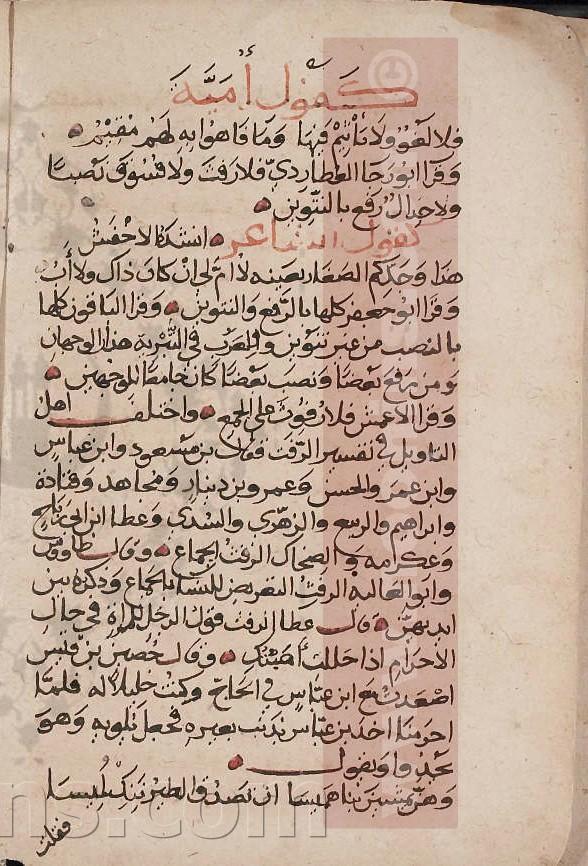 كقول أمية
فلا لغو ولا تأثيم فيها وما فاهوا به لهم مقيم
وقرا ابو رجا العطاردي فلا رفث ولا فسوق نصبا
ولا جدال رفع بالتنوين
كقول الشاعر انشد الاخفش
هذا وجدكم الصغار بعينه لا ام لي ان كان ذاك ولا أب
وقرا ابو جعفر كلها بالرفع والتنوين وقرا الباقون كلها
بالنصب من غير تنوين والعرب في التبرية هذان الوجهان
ومن رفع بعضا ونصب بعضا كان جامعا للوجهين
وقرا الاعمش فلا رفوث على الجمع واختلف اهل
التاويل في تفسير الرفث فقال بن مسعود وابن عباس
وابن عمر والحسن وعمرو بن دينار ومجاهد وقتادة
وابراهيم والربيع والزهري والسدي وعطا ابن ابي رباح
وعكرامه والضحاك الرفث الجماع وقال طاووس
وابو العالية الرفث التعريض للنساء بالجماع وذكره بين
ايديهن قال عطا الرفث قول الرجل للمراة في حال
الاحرام اذا حللت أصبتك وقال حصين بن قيس
اصعدت مع ابن عباس في الحاج وكنت خليلا له فلما
احرمنا اخذ بن عباس بذنب بعيره فجعل يلويه وهو
يحدوا ويقول
وهن يمشين بنا هميسا ان تصدق الطير ننك لميسا
فقلت
ns.com